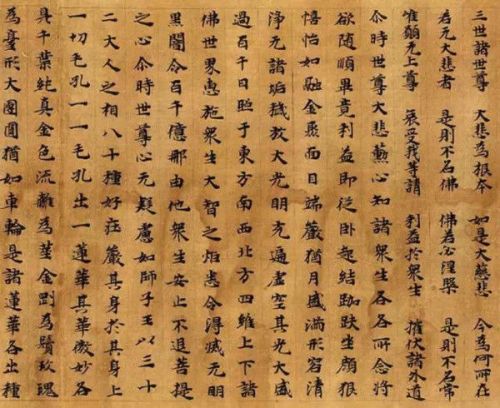 三世諸世尊 大悲為根本 如是大慈悲 今為何所在
若无大悲者 是則不名佛 佛若必涅槃 是則不名常
惟願无上尊 哀受我等請 利益於衆生 摧伏諸外道
尒時世尊大悲勳心知諸衆生各各所念將
欲随順畢竟利益即従卧起結跏趺坐顔狠
憘怡如融金聚面目端嚴猶月盛滿形容清
淨无諸垢穢放大光明充遍虛空其光大盛
過百千日照于東方南西北方四維上下諸
佛世界惠施衆生大智之炬悉令得滅无明
黑闇令百千億那由他衆生安止不退菩提
之心尒時世尊心无疑慮如師子王以三十
二大人之相八十種好庄嚴其身於其身上
一切毛孔一一毛孔出一蓮華其華微妙各
具千葉純真金色流離為莖金剛為鬚玫瑰
為臺形大團圓猶如車輪是諸蓮華各出種